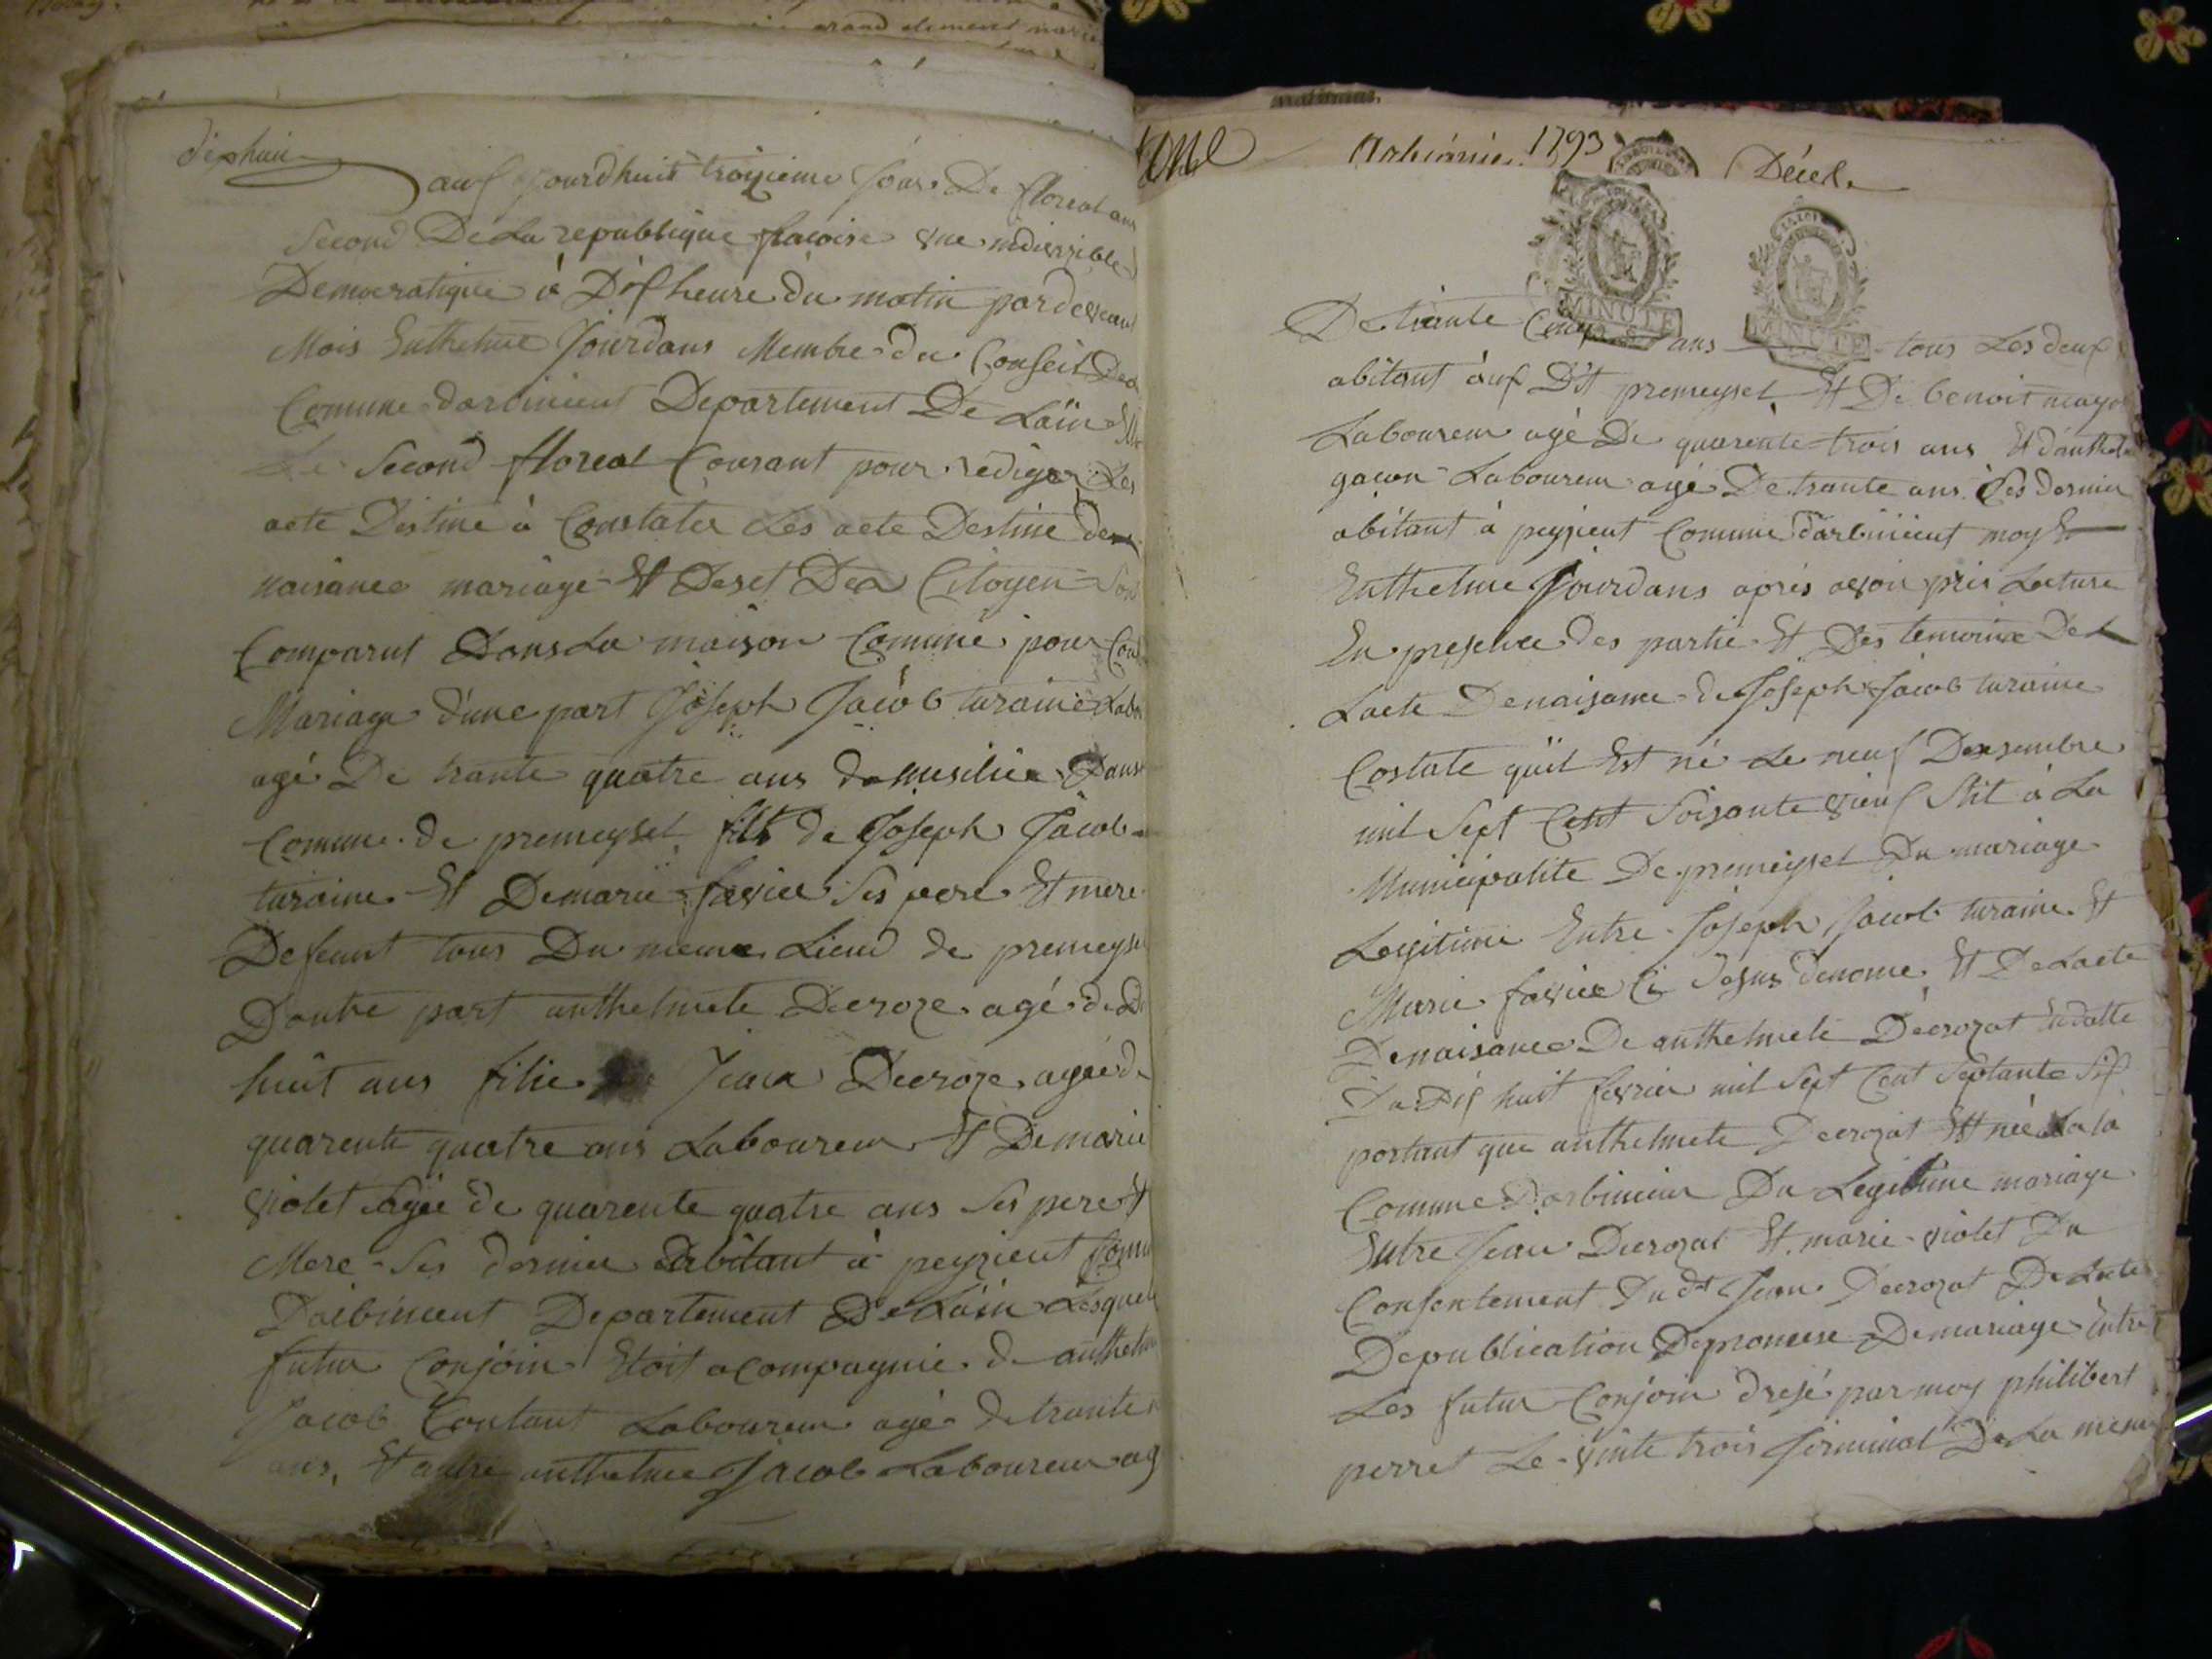 grand element
dixhuit
aux jourdhuit troizieme jour De floreal ans
Second De La republique fracoise une indivisible
Democratique à Dix heure du matin par devant
Mois Enthelme Jourdans Membre du Conseil De
Comune darbinieut Departement De Lain
Le Second floreal Courant pour rediger Les
acte Destiné à Constater Les acte Destiné de
naisance mariage Et Deses Des Citoyen Son
Comparut Dans La maison Comune pour Con
Mariage d'une part Joseph Jacob turaine Labo
agé De trante quatre ans domicilié Dans
Comune de premeysel fils de Joseph Jacob
turaine Et Demarie favier Ses pere Et mere
Defeunt tous Du meme Lieu de premeyse
Dautre part anthelmete Decroze agé de Di
huit ans fillie Jean Decroze agée de
quarente quatre ans Laboureur Et De marie
violet agée de quarente quatre ans Ses pere Et
Mere Ses dernier abitant à peyzieut Comu
Darbinieut Departement De Lain Lesquel
futur Conjoin Etoit acompagnie de anthelm
Jacob Contant Laboureur agé de trante
ans, Et autre anthelme Jacob Laboureur ag
Arbinieu 1793 Décéd.
MINUTE MINUTE
De trante Cinq ans tous Les deux
abitant aux Dit premeysel Et De benoit
Laboureur agé De quarente trois ans Et danthel
gacon Laboureur agé De trante ans Ses dernier
abitant à peyzieut Comune darbinieut moy
Enthelme Jourdans aprés avoir pris Lecture
En presence des partie Et Des temoins De
Lacte De naisance de Joseph Jacob turaine
Costate quil Est né Le neuf Desembre
mil Sept Cent Soisante
Municipalite De premeysel Du mariage
Legitime Entre Joseph Jacob turaine Et
Marie favier Ci desus denome Et De Lacte
De naisance De anthelmete Decrozat En datte
Du Dix huit fevrier mil Sept Cent Septante Six
portant que anthelmete Decrozat Et née
Comune Darbinieu Du Legitime mariage
Entre Jean Decrozat Et marie violet Du
Consentement Du dt Jean Decrozat De Lacte
De publication De promese De mariage Entre
Les futur Conjoin dresé par moy philibert
perret Le vinte trois Jerminal De La meme